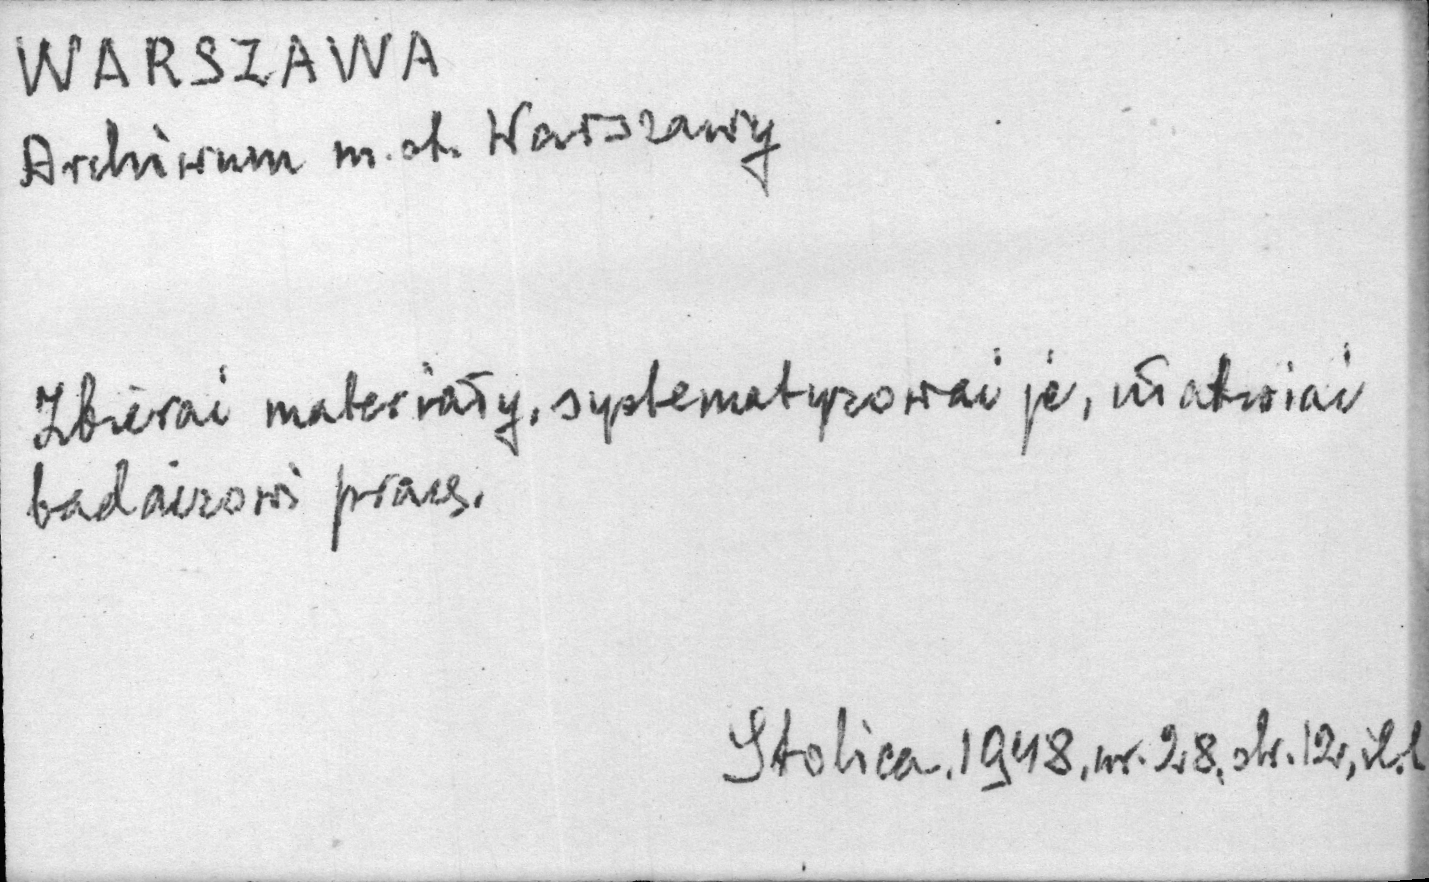 WARSZAWA
Archiwum m. st. Warszawy
Zbierać materiały, systematyzować je, ułatwiać
badaczowi pracę.
Stolica. 1948, nr. 28, str. 12, il.